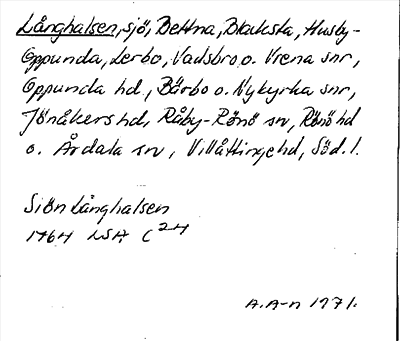 Långhalsen, sjö, Bettna, Blacksta, Husby-
Oppunda, Lerbo, Vadsbro o. Vrena snr,
Oppunda hd., Bärbo o. Nykyrka snr,
Jönåkers hd, Råby-Rönö sn, Rönö hd
o. Årdala sn, Villåttinge hd, Söd. l.
Siön Långhalsen
1764 LSA C24
A.A-n 1971.